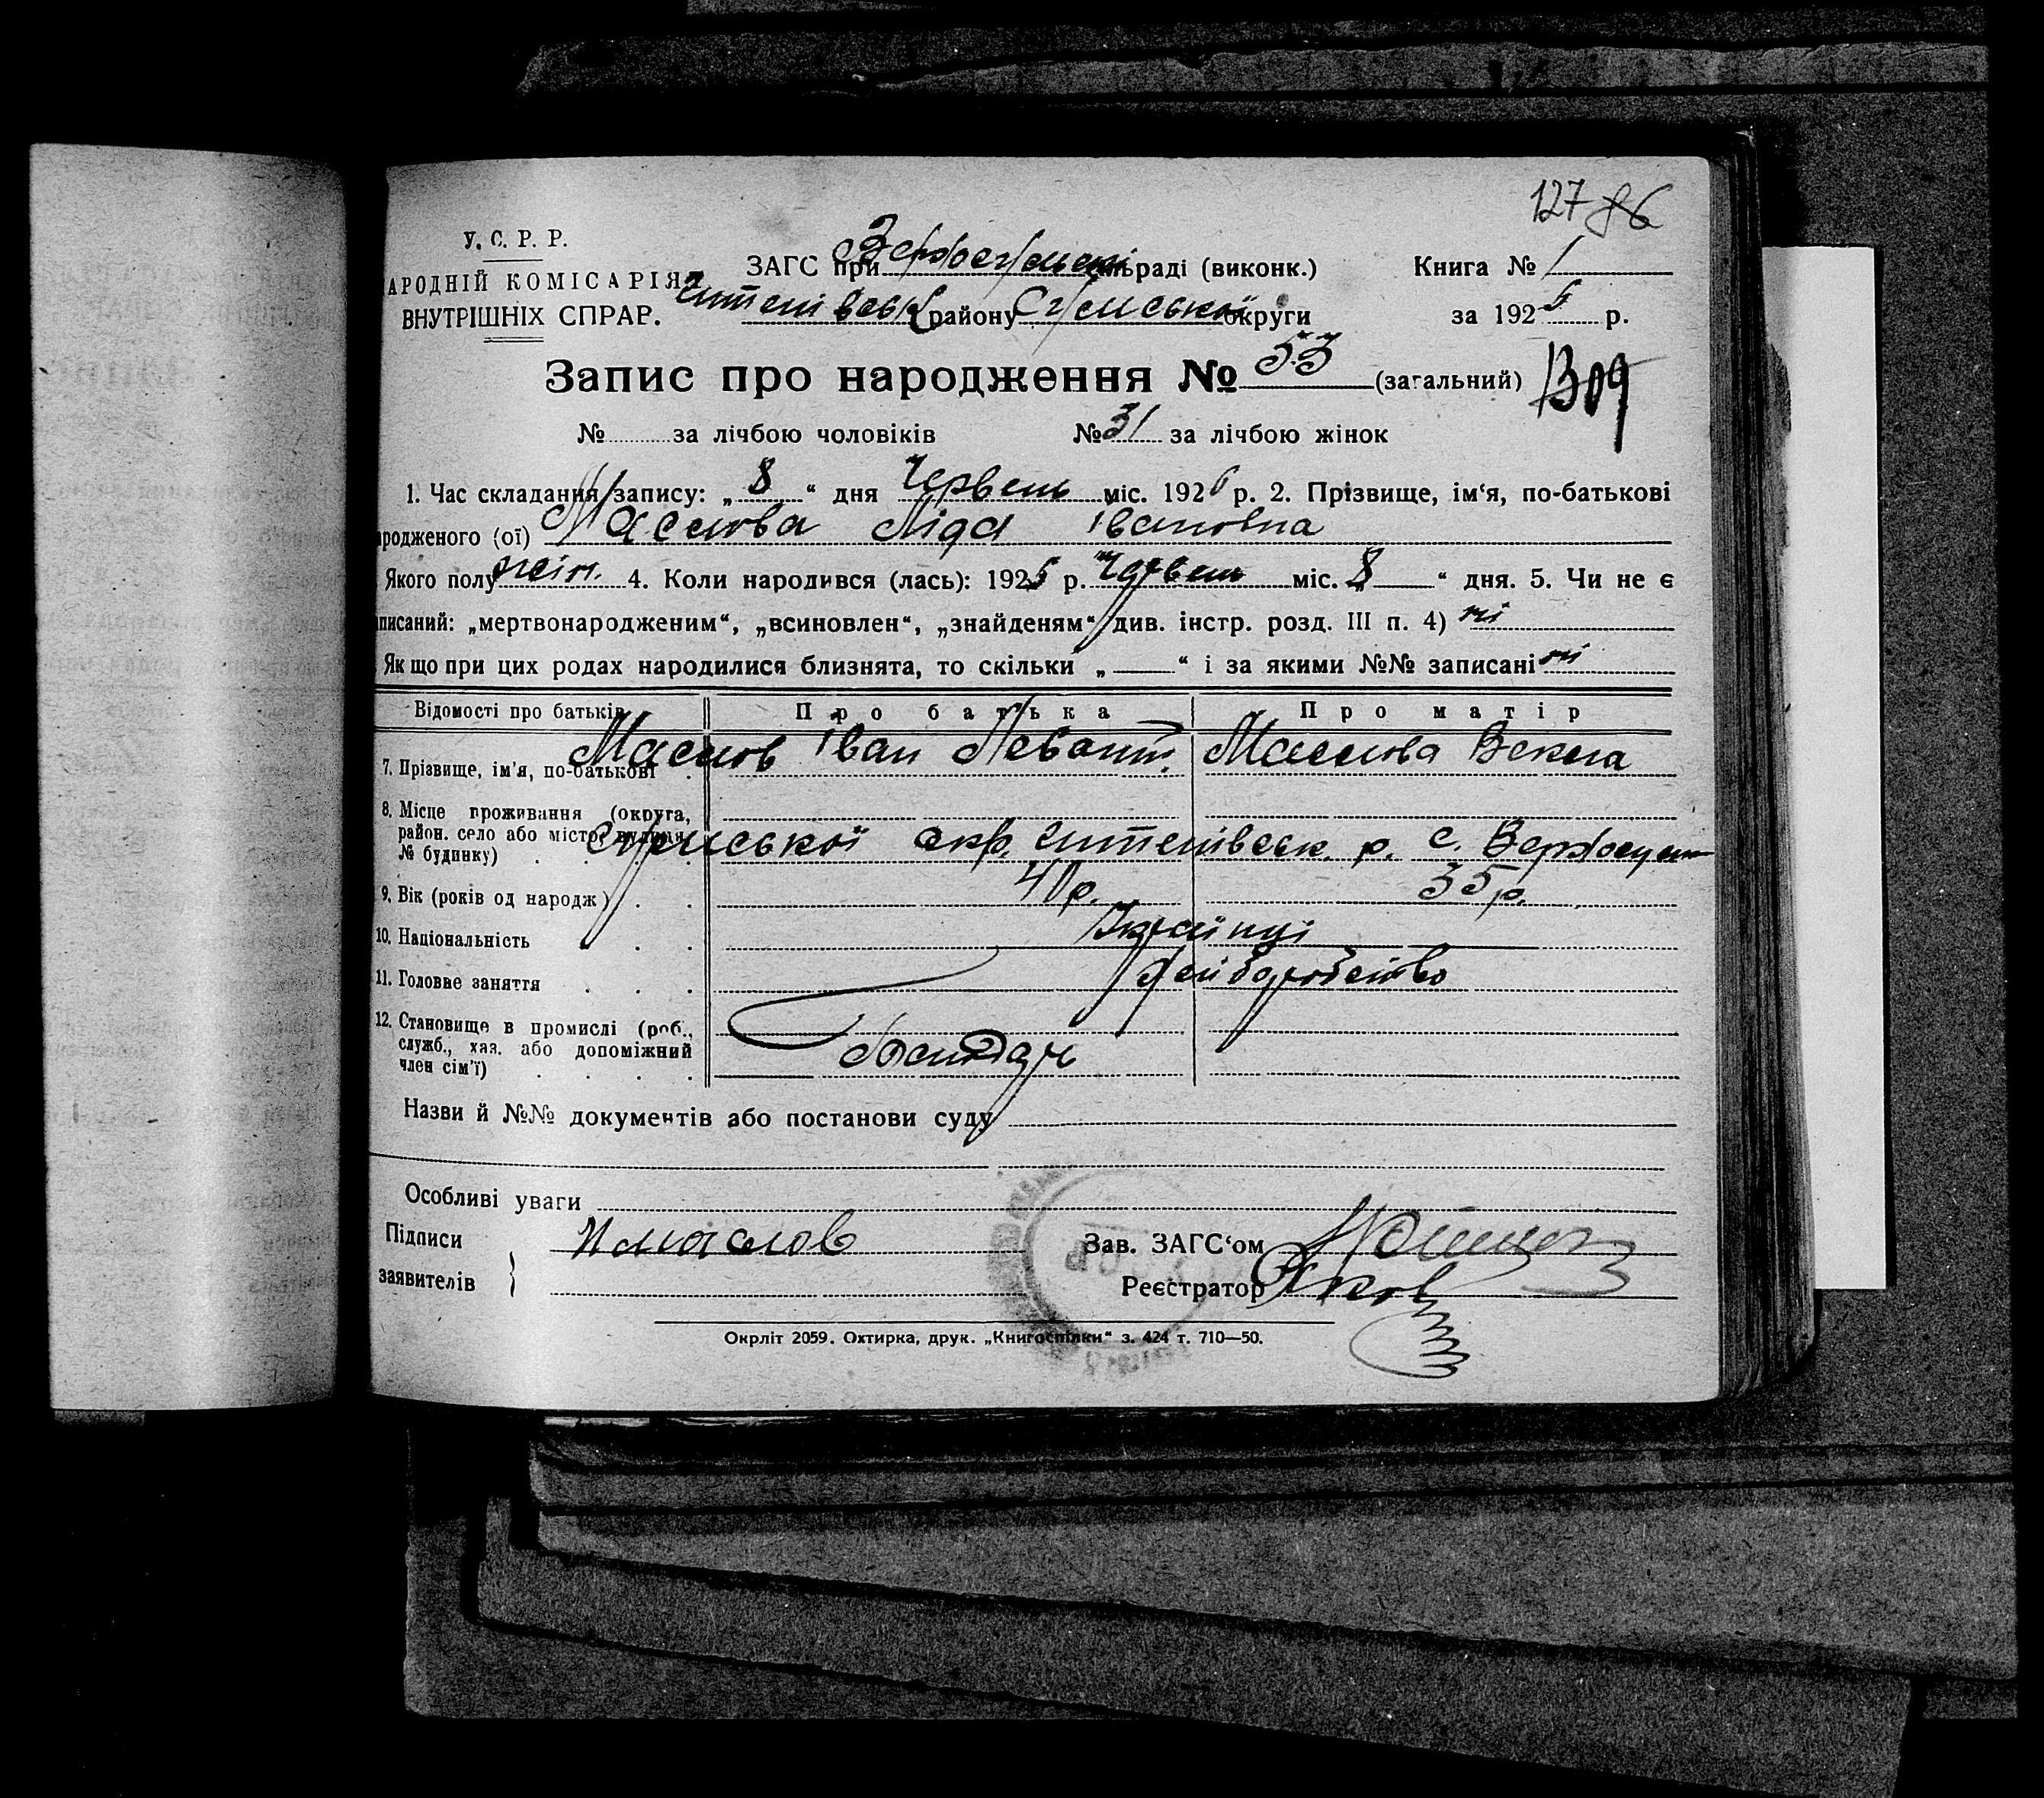 127 86
У. С. Р. Р.
АРОДНІЙ КОМІСАРІЯТ
ВНУТРІШНІХ СПРАР.
ЗАГС при раді (виконк.)
району Сумської округи
Книга № 1
за 1926 р.
Запис про народження № 53 (загальний) 1309
№ за лічбою чоловіків № 31 за лічбою жінок
1. Час складання запису: „ 8 “ дня Червень міс. 1926 р. 2. Прізвище, ім‘я, по-батькові
родженого (ої) Маслова Ліда Івановна
Якого полу жін. 4. Коли народився (лась): 1926 р. Червень міс. „ 8 “ дня. 5. Чи не є
писаний: „мертвонародженим“, „всиновлен“, „знайденям“ див. інстр. розд. III п. 4) ні
Якщо при цих родах народилися близнята, то скільки „ “ і за якими №№ записані ні
Відомості про батьків Про батька Про матір
7. Прізвище, ім'я, по-батькові Маслов Іван Левонт. Маслова Векла
8. Місце проживання (округа,
район. село або місто, вулиця,
№ будинку) Сумської окр. р. с.
9. Вік (років од народж) 41 р. 35 р.
10. Національність Українці
11. Головне заняття
12. Становище в промислі (роб.,
служб., хаз. або допоміжний
член сім'ї)
Назви й №№ документів або постанови суду
Особливі уваги
Підписи
заявителів
И Маслов
Зав. ЗАГС‘ом
Реєстратор
Окрліт 2059. Охтирка, друк. „Книгоспілки“ з. 424 т. 710—50.